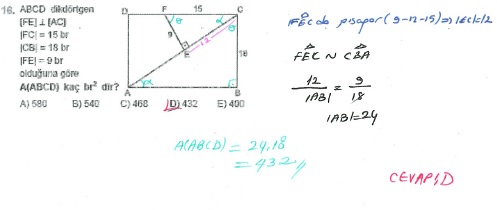 16. ABCD dikdörtgen
[FE] ⊥ [AC]
|FC| = 15 br
|CB| = 18 br
|FE| = 9 br
olduğuna göre
A(ABCD) kaç br² dir?
A) 580 B) 540 C) 468 D) 432 E) 490
D F 15 C
θ θ α
9 12 18
E
α
A B
FEC de pisagor (9-12-15) ⇒ |EC|=12
FEC ~ CBA
12/|AB| = 9/18
|AB|=24
A(ABCD) = 24.18
= 432
CEVAP D